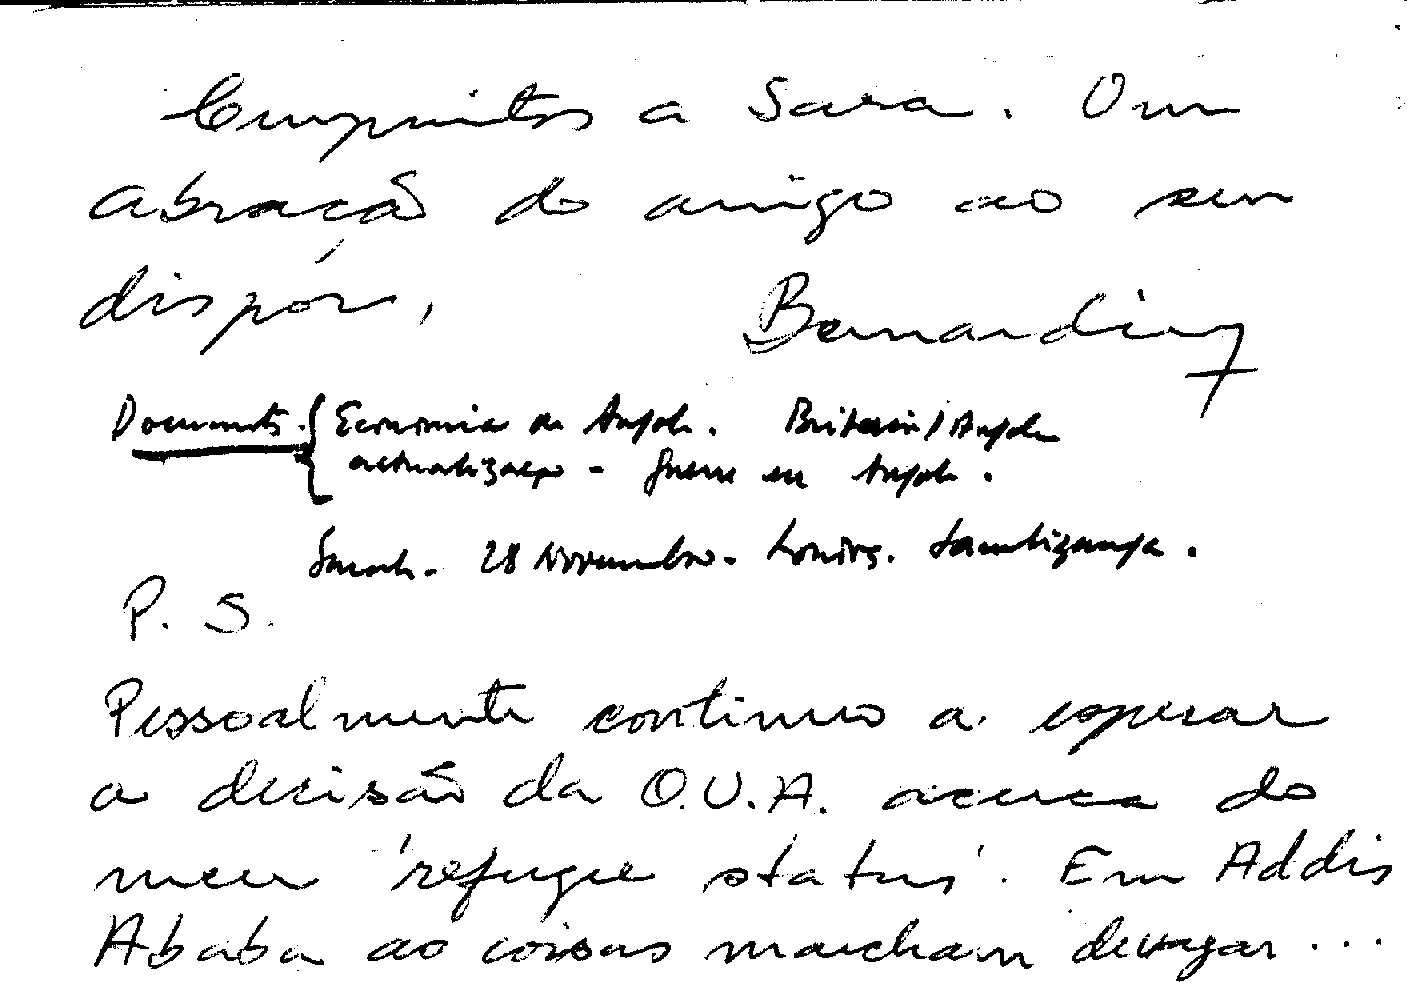 Cumprimtos a Sara. Um
abração do amigo ao seu
dispôr,
Bernardino
Documents. { Economia de Angola. Britain/Angola
actualização - guerra em Angola.
Sarah. 28 Novembro. Londres. Sambizanga.
P. S.
Pessoalmente continuo a esperar
a decisão da O.U.A. acerca do
meu 'refugee status'. Em Addis
Ababa as coisas marcham devagar...